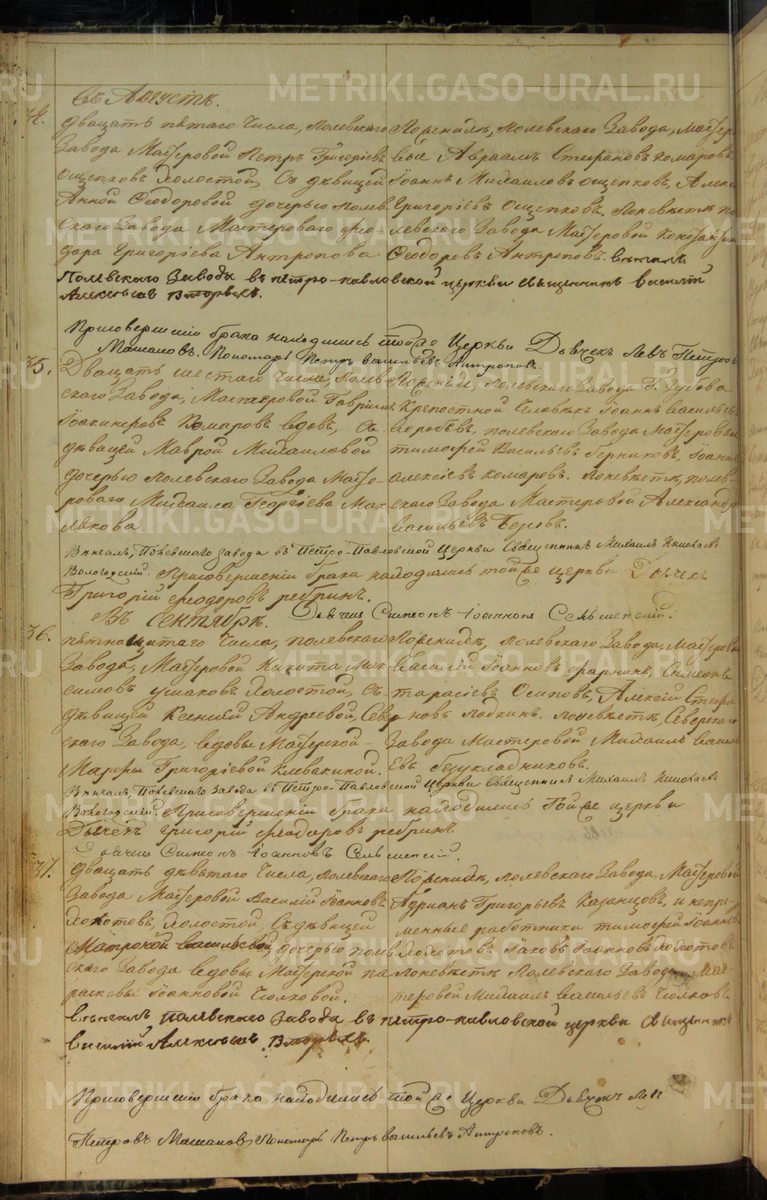 Въ Августѣ.
34. двацать пятаго Числа, Полевскаго
Завода Мастеровой Петръ Григорьевъ
Ощепковъ Холостой, Съ дѣвицей
Анной Ѳеодоровой дочерью Полев
скаго Завода Мастероваго Ѳео
дора Григоріева Антропова
По женихѣ, Полевскаго Завода, Мастер
вые Авраамъ Стефановъ Комаровъ
Іоаннъ Михаиловъ Ощепковъ, Алекс
Григоріевъ Ощепковъ, По невѣстѣ по
левскаго Завода Мастеровой
Ѳеодоровъ Антроповъ. Вѣнчалъ
Полевскаго Завода въ петро-павловской церкви Священникъ Василій
Алексѣевъ Вторыхъ.
При совершеніи брака находились той же Церкви Дьячекъ Левъ Петровъ
Пономарь Петръ Васильевъ Антроповъ.
35. Двацать шестаго Числа, Полев
скаго Завода, Мастеровой Гавріилъ
Іоакимовъ Комаровъ вдовъ, Съ
дѣвицей Маврой Михаиловой
дочерью Полевскаго Завода Масте
роваго Михаила Георгіева Мах
лякова
По женихѣ, Полевскаго Завода Г. Зубова
Крепостной Человѣкъ Іоаннъ Васильевъ
Воробьевъ, полевскаго Завода Мастеровые
тимофей Васильевъ Іоаннъ
Алексіевъ Комаровъ. По невѣстѣ, полев
скаго Завода Мастеровой Александръ
Васильевъ
Вѣнчалъ, Полевскаго завода въ Петро-Павловской Церкви Священникъ Михаилъ Николаевъ
Вологодскій. При совершеніи брака находились той же церкви Дьячекъ
Григорій Ѳеодоровъ ребринъ.
Дьячекъ Симеонъ Іоанновъ
Въ Сентябрѣ.
36. пятнацатаго Числа, полевскаго
Завода, Мастеровой Никита Мак
симовъ Ушаковъ Холостой, Съ
дѣвицей Ксенией Андреевой, Север
скаго Завода, вдовы Мастерской
Марфы Григоріевой Клевакиной.
По женихѣ, Полевскаго Завода, Мастеровые
Василій Іоанновъ Симеонъ
тарасіевъ Осиповъ, Алексій Стефа
новъ По невѣстѣ, Северскаго
Завода Мастеровой Михаилъ Василь
евъ
Вѣнчалъ Полевскаго Завода въ Петро-Павловской Церкви Священникъ Михаилъ Николаевъ
Вологодскій. При совершеніи брака находились Той же церкви
Дьячекъ Григорій Ѳеодоровъ ребринъ.
Дьячекъ Симеонъ Іоанновъ
37. двацать девятаго Числа, Полевскаго
Завода Мастеровой Василій Іоанновъ
Холостой Съ дѣвицей
Матроной Васильевой, дочерью полев
скаго Завода вдовы Мастерской па
расковьи Іоанновой Чолковой.
По женихѣ, Полевскаго Завода Мастеровой
Адріанъ Григорьевъ Казанцовъ, и непре
менные работники тимофей Іоанновъ
Іаковъ Іоанновъ
По невѣстѣ Полевскаго Завода Мас
теровой Михаилъ Васильевъ Чолковъ.
Вѣнчалъ полевскаго Завода въ петро-павловской церкви Священникъ
Василий Алексѣевъ Вторыхъ.
При совершеніи брака находились той же Церкви Дьячекъ Левъ
Петровъ Пономарь Петръ Васильевъ Антроповъ.
METRIKI.GASO-URAL.RU